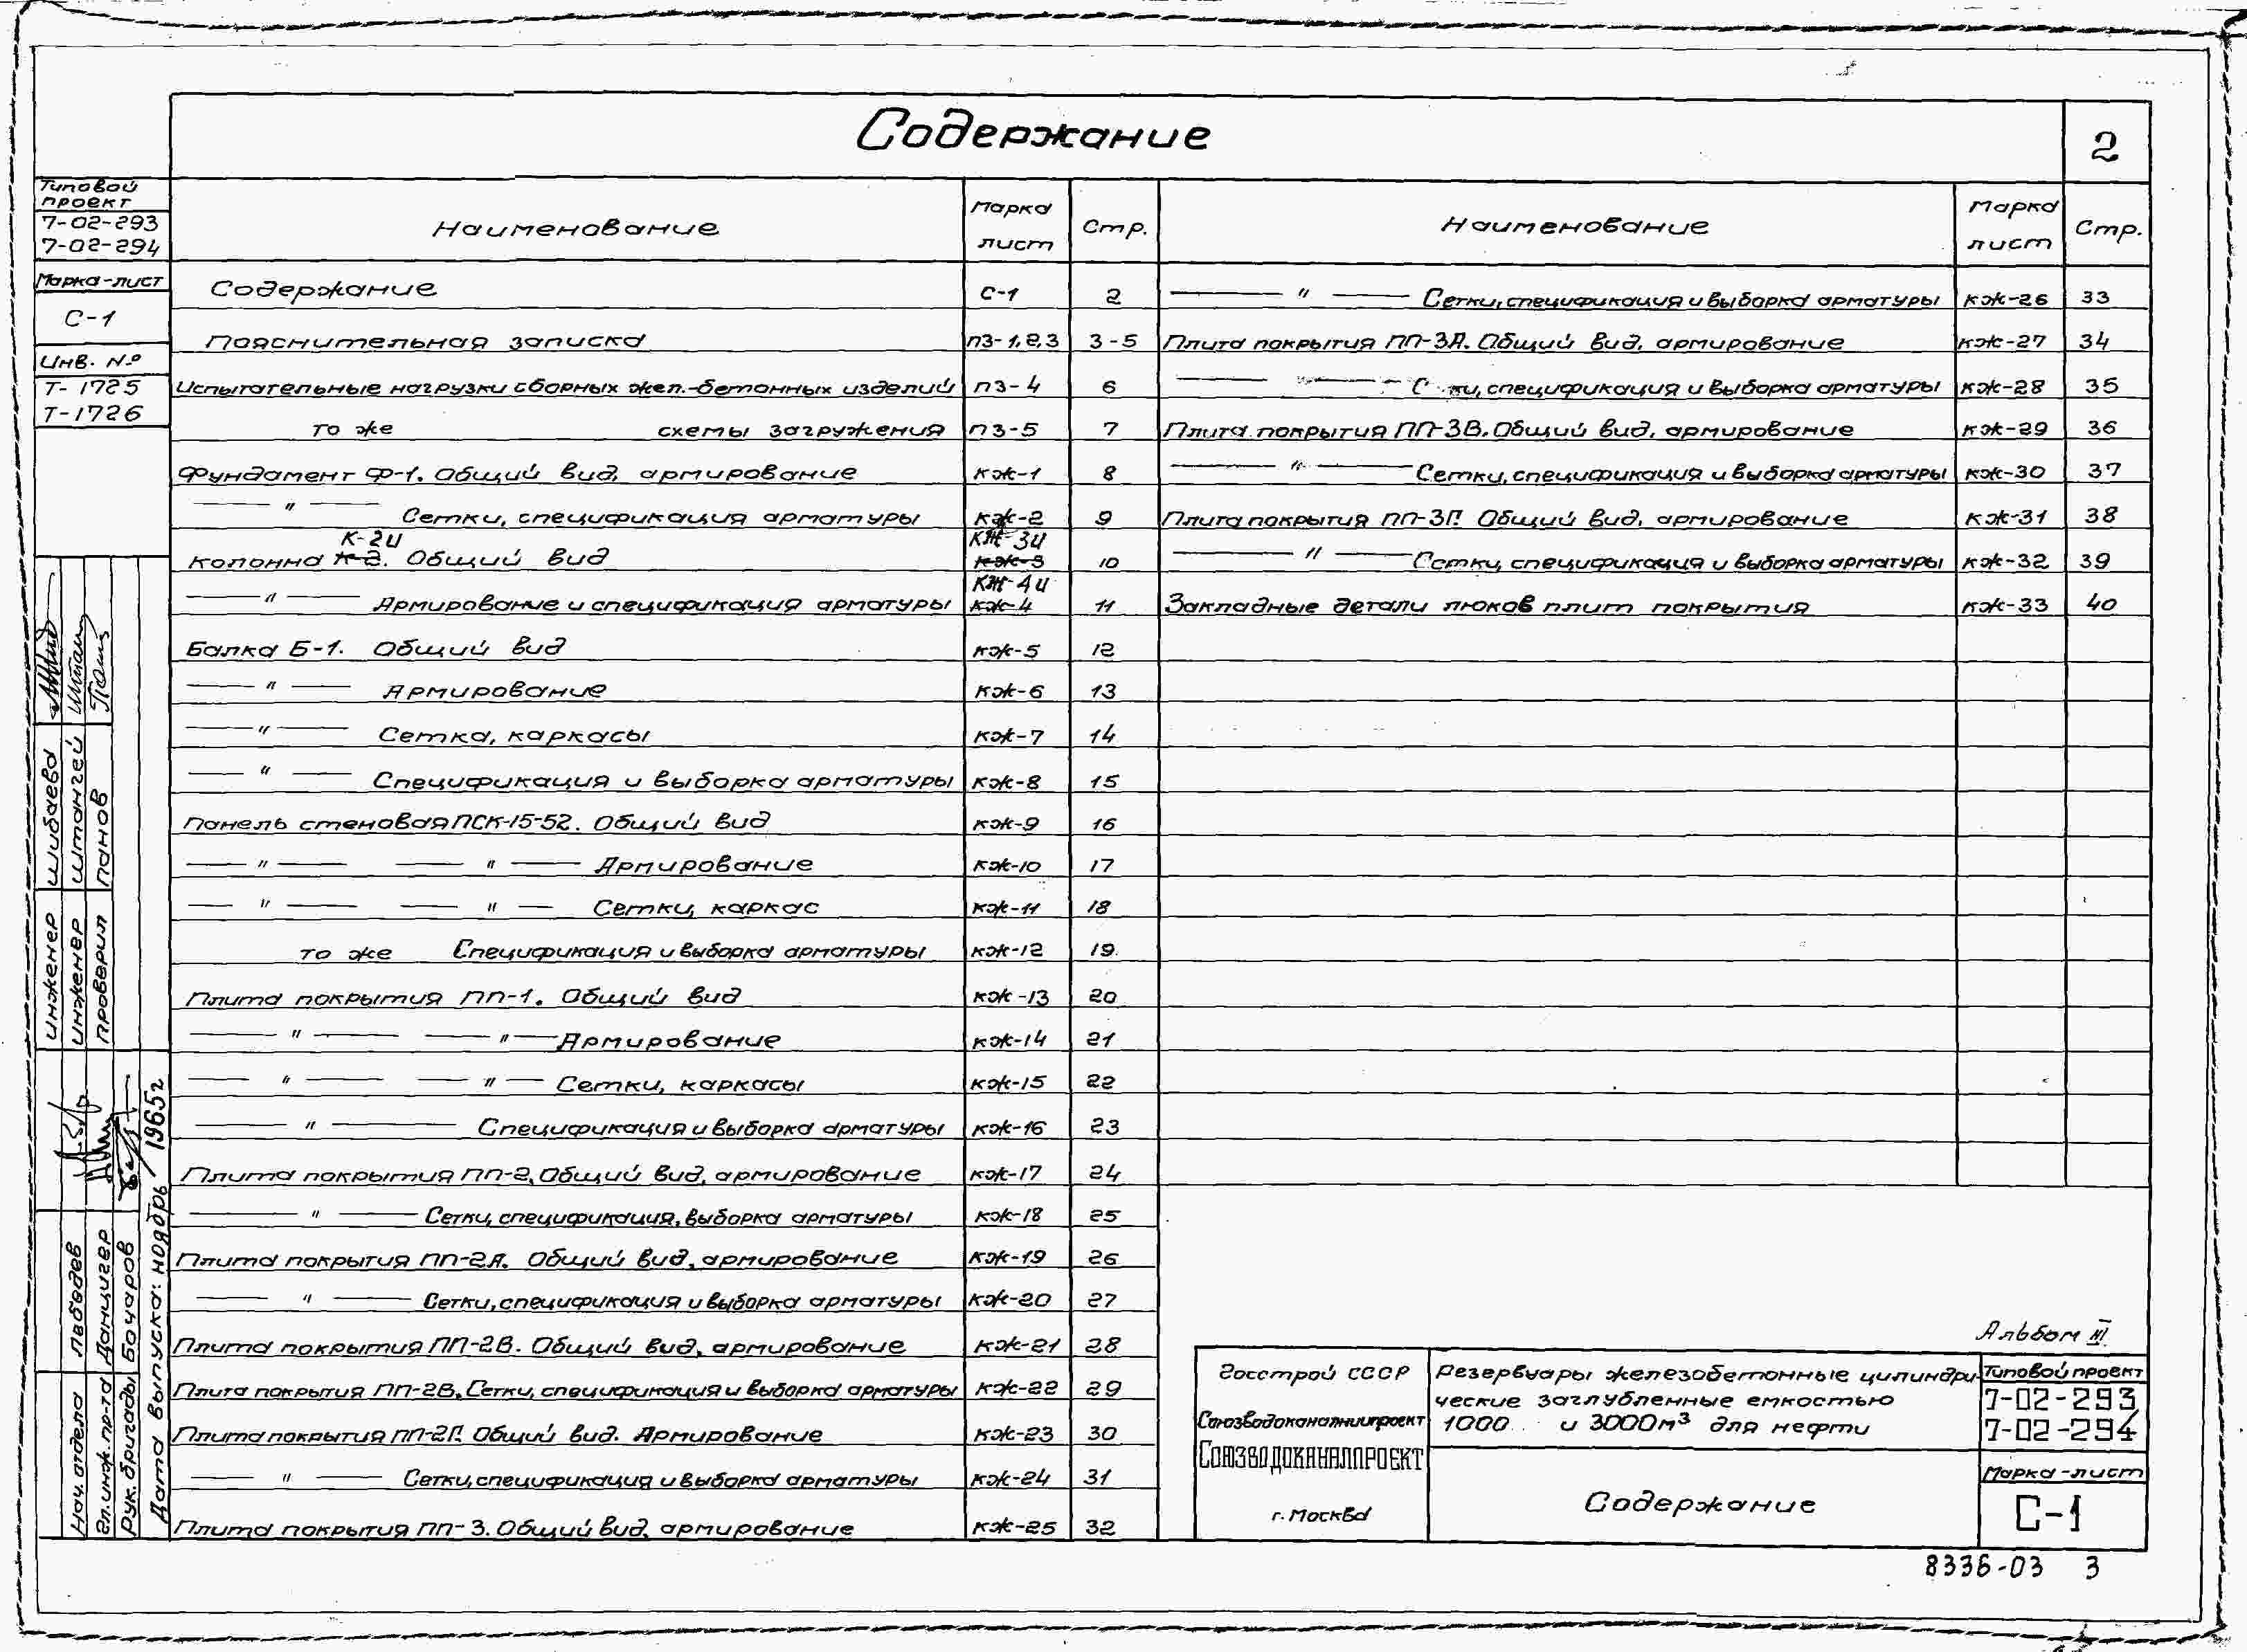 Содержание
2
Типовой
проект
7-02-293
7-02-294
Марка-лист
С-1
Инв. №
Т-1725
Т-1726
Наименование Марка лист Стр.
Содержание С-1 2
Пояснительная записка ПЗ-1,2,3 3-5
Испытательные нагрузки сборных жел.-бетонных изделий ПЗ-4 6
то же схемы загружения ПЗ-5 7
Фундамент Ф-1. Общий вид, армирование КЖ-1 8
— " — Сетки, спецификация арматуры КЖ-2 9
К-2и КЖ-3и
Колонна К-2. Общий вид КЖ-3 10
КЖ-4и
— " — Армирование и спецификация арматуры КЖ-4 11
Балка Б-1. Общий вид КЖ-5 12
— " — Армирование КЖ-6 13
— " — Сетка, каркасы КЖ-7 14
— " — Спецификация и выборка арматуры КЖ-8 15
Панель стеновая ПСК-15-52. Общий вид КЖ-9 16
— " — — " — Армирование КЖ-10 17
— " — — " — Сетки, каркас КЖ-11 18
то же Спецификация и выборка арматуры КЖ-12 19
Плита покрытия ПП-1. Общий вид КЖ-13 20
— " — — " — Армирование КЖ-14 21
— " — — " — Сетки, каркасы КЖ-15 22
— " — Спецификация и выборка арматуры КЖ-16 23
Плита покрытия ПП-2, Общий вид, армирование КЖ-17 24
— " — Сетки, спецификация, выборка арматуры КЖ-18 25
Плита покрытия ПП-2А. Общий вид, армирование КЖ-19 26
— " — Сетки, спецификация и выборка арматуры КЖ-20 27
Плита покрытия ПП-2В. Общий вид, армирование КЖ-21 28
Плита покрытия ПП-2В, Сетки, спецификация и выборка арматуры КЖ-22 29
Плита покрытия ПП-2Г. Общий вид. Армирование КЖ-23 30
— " — Сетки, спецификация и выборка арматуры КЖ-24 31
Плита покрытия ПП-3. Общий вид, армирование КЖ-25 32
Наименование Марка лист Стр.
— " — Сетки, спецификация и выборка арматуры КЖ-26 33
Плита покрытия ПП-3А. Общий вид, армирование КЖ-27 34
— " — спецификация и выборка арматуры КЖ-28 35
Плита покрытия ПП-3В. Общий вид, армирование КЖ-29 36
— " — Сетки, спецификация и выборка арматуры КЖ-30 37
Плита покрытия ПП-3Г. Общий вид, армирование КЖ-31 38
— " — Сетки, спецификация и выборка арматуры КЖ-32 39
Закладные детали люков плит покрытия КЖ-33 40
инженер Шибаева
инженер Штангей
проверил Панов
Нач. отдела Лебедев
Гл. инж. пр-та Данцигер
Рук. бригады Бочаров
Дата выпуска: ноябрь 1965г
Альбом III
Госстрой СССР
Союзводоканалниипроект
СОЮЗВОДОКАНАЛПРОЕКТ
г. Москва
Резервуары железобетонные цилиндри-
ческие заглубленные емкостью
1000 и 3000м³ для нефти
Содержание
Типовой проект
7-02-293
7-02-294
Марка-лист
С-1
8336-03 3